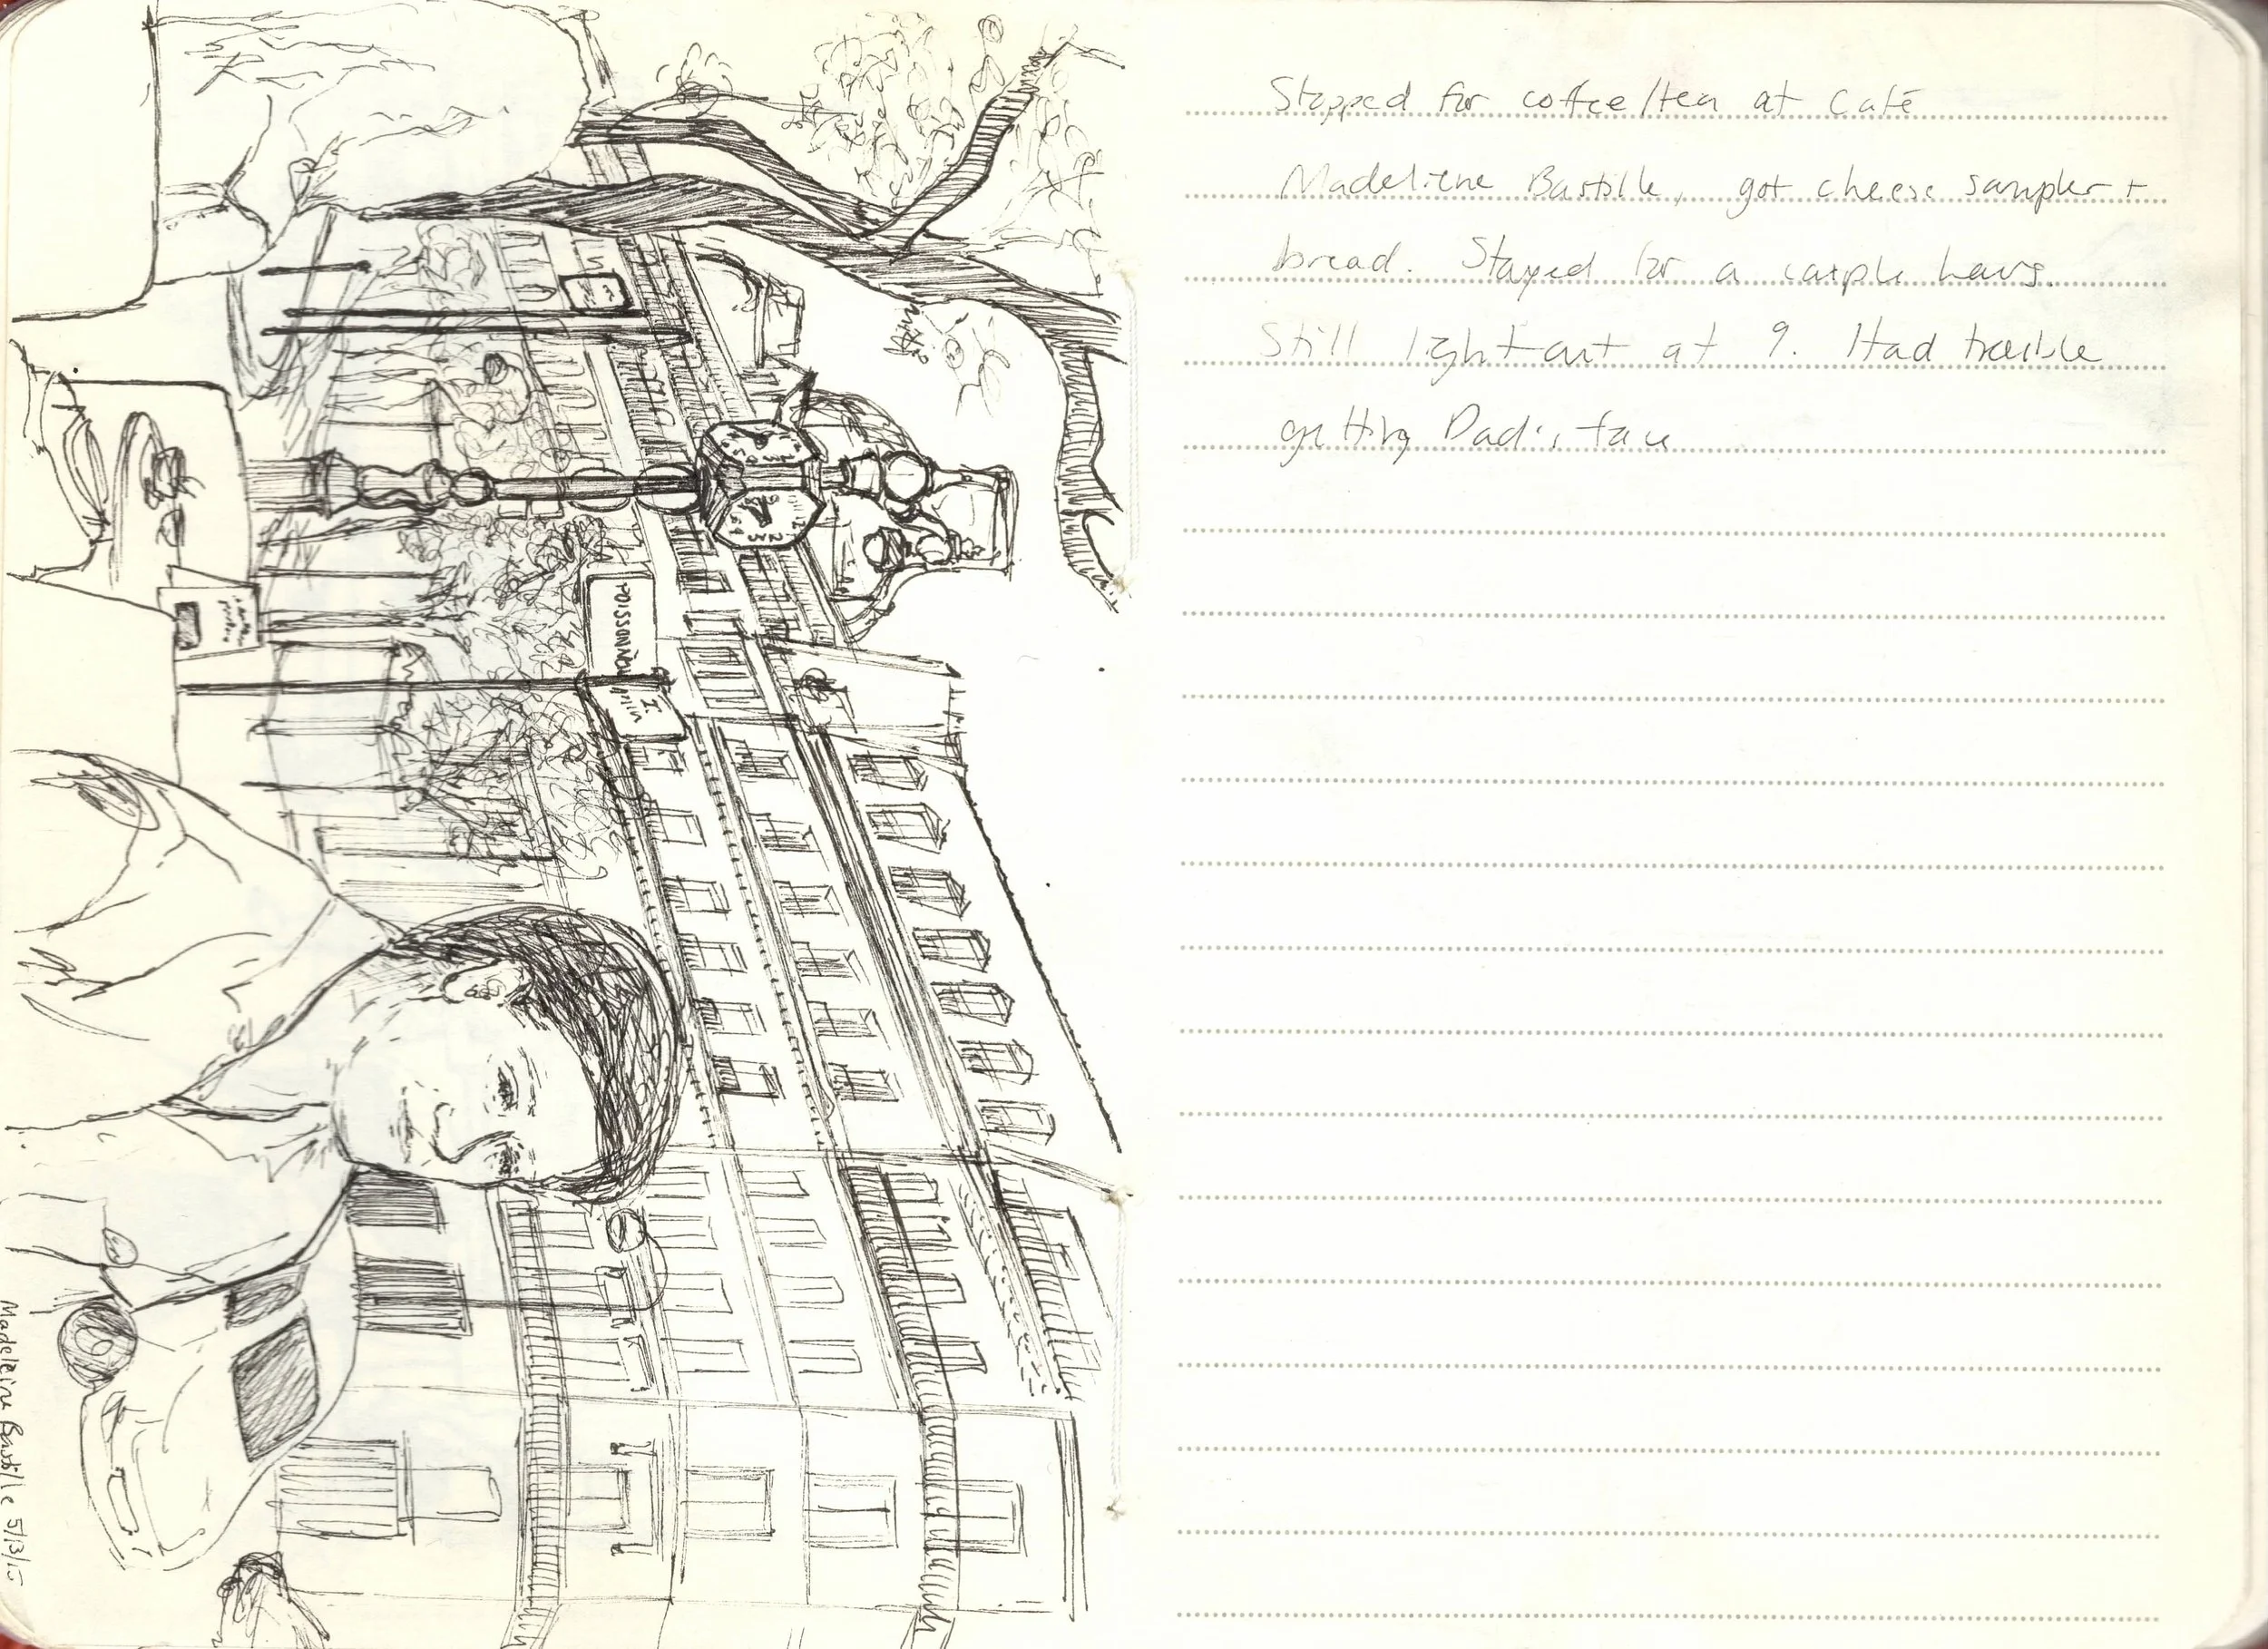 Stopped for coffee/tea at Café
Madeliene Bastille, got cheese sampler +
bread. Stayed for a couple hours.
Still light out at 9. Had trouble
getting Dad's face
POISSONNERIE
Madeleine Bastille 5/13/15